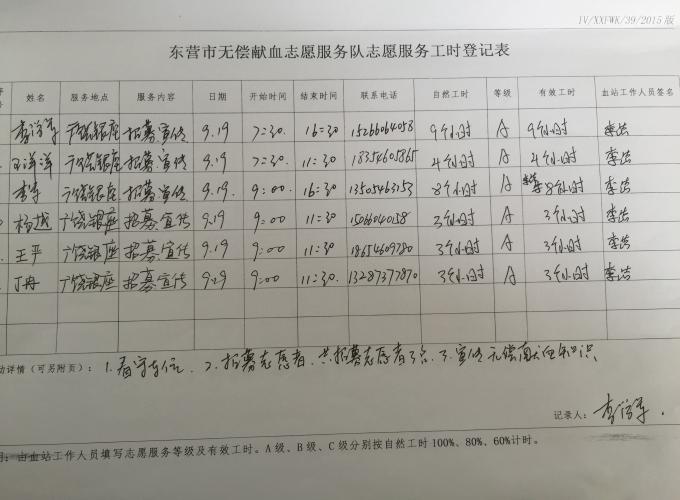 IV/XXFWK/39/2015版
东营市无偿献血志愿服务队志愿服务工时登记表
号 姓名 服务地点 服务内容 日期 开始时间 结束时间 联系电话 自然工时 等级 有效工时 血站工作人员签名
银座 招募宣传 9.19 7:30. 16:30 15266064058 9个小时 A 9个小时 李浩
王洋洋 银座 招募宣传 9.19 7:30 11:30 18354605865 4个小时 A 4个小时 李浩
银座 招募宣传 9.19. 9:00 16:30 13505463153 8个小时 A 8个小时 李浩
杨越 银座 招募宣传 9.19 9:00 11:30 15066040158 3个小时 A 3个小时 李浩
王严 银座 招募宣传 9.19 9:00 11:30 18654609780 3个小时 A 3个小时 李浩
丁冉 银座 招募宣传 9:00 11:30. 13287377870 3个小时 A 3个小时 李浩
动详情（可另附页）： 1.看守车位、2、招募志愿者、共招募志愿者3名.3.宣传无偿献血知识、
记录人：
明：由血站工作人员填写志愿服务等级及有效工时。A级、B级、C级分别按自然工时100%、80%、60%计时。